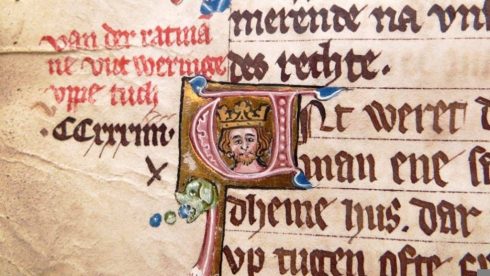 van der ratma
ne vnt weringe
vppe tuch
·CCxxxiiii·
merende na
des rechte.
Vnt weret
man ene
dheme hus. dar
vp tugen ofte